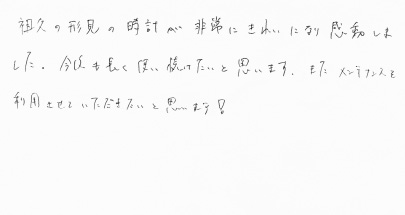 祖父の形見の時計が非常にきれいになり感動しま
した。今後も長く使い続けたいと思います。またメンテナンスを
利用させていただきたいと思います!